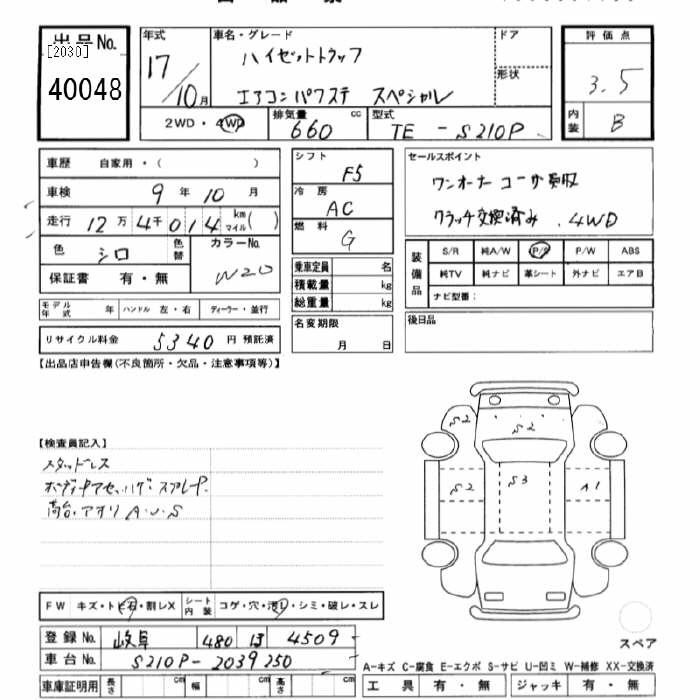 出品No.
[2030]
40048
年式
17/10月
車名・グレード
ハイゼットトラック
エアコンパワステ スペシャル
ドア
形状
2WD・4WD
排気量 660 cc
型式 TE-S210P
評価点
3.5
内装 B
車歴 自家用・( )
車検 9年10月
走行 12万4千014 km マイル( )
色 シロ
色替
カラーNo. W20
保証書 有・無
モデル年式 年
ハンドル 左・右
ディーラー・並行
リサイクル料金 5340円 預託済
シフト F5
冷房 AC
燃料 G
乗車定員 名
積載量 kg
総重量 kg
名変期限 月 日
セールスポイント
ワンオーナー ユーザー買取
クラッチ交換済み. 4WD
装備品
S/R 純A/W P/S P/W ABS
純TV 純ナビ 革シート 外ナビ エアB
ナビ型番:
後日品
【出品店申告欄(不良箇所・欠品・注意事項等)】
【検査員記入】
スタッドレス
荷台.アオリ A.U.S
S2
S2
S2
S3
A1
FW キズ・トビ石・割レX
シート内装 コゲ・穴・汚レ・シミ・破レ・スレ
登録No. 岐阜 480 ほ 4509
車台No. S210P-2039250
車庫証明用 長さ cm 幅 cm 高さ cm
スペア
A-キズ C-腐食 E-エクボ S-サビ U-凹ミ W-補修 XX-交換済
工具 有・無 ジャッキ 有・無